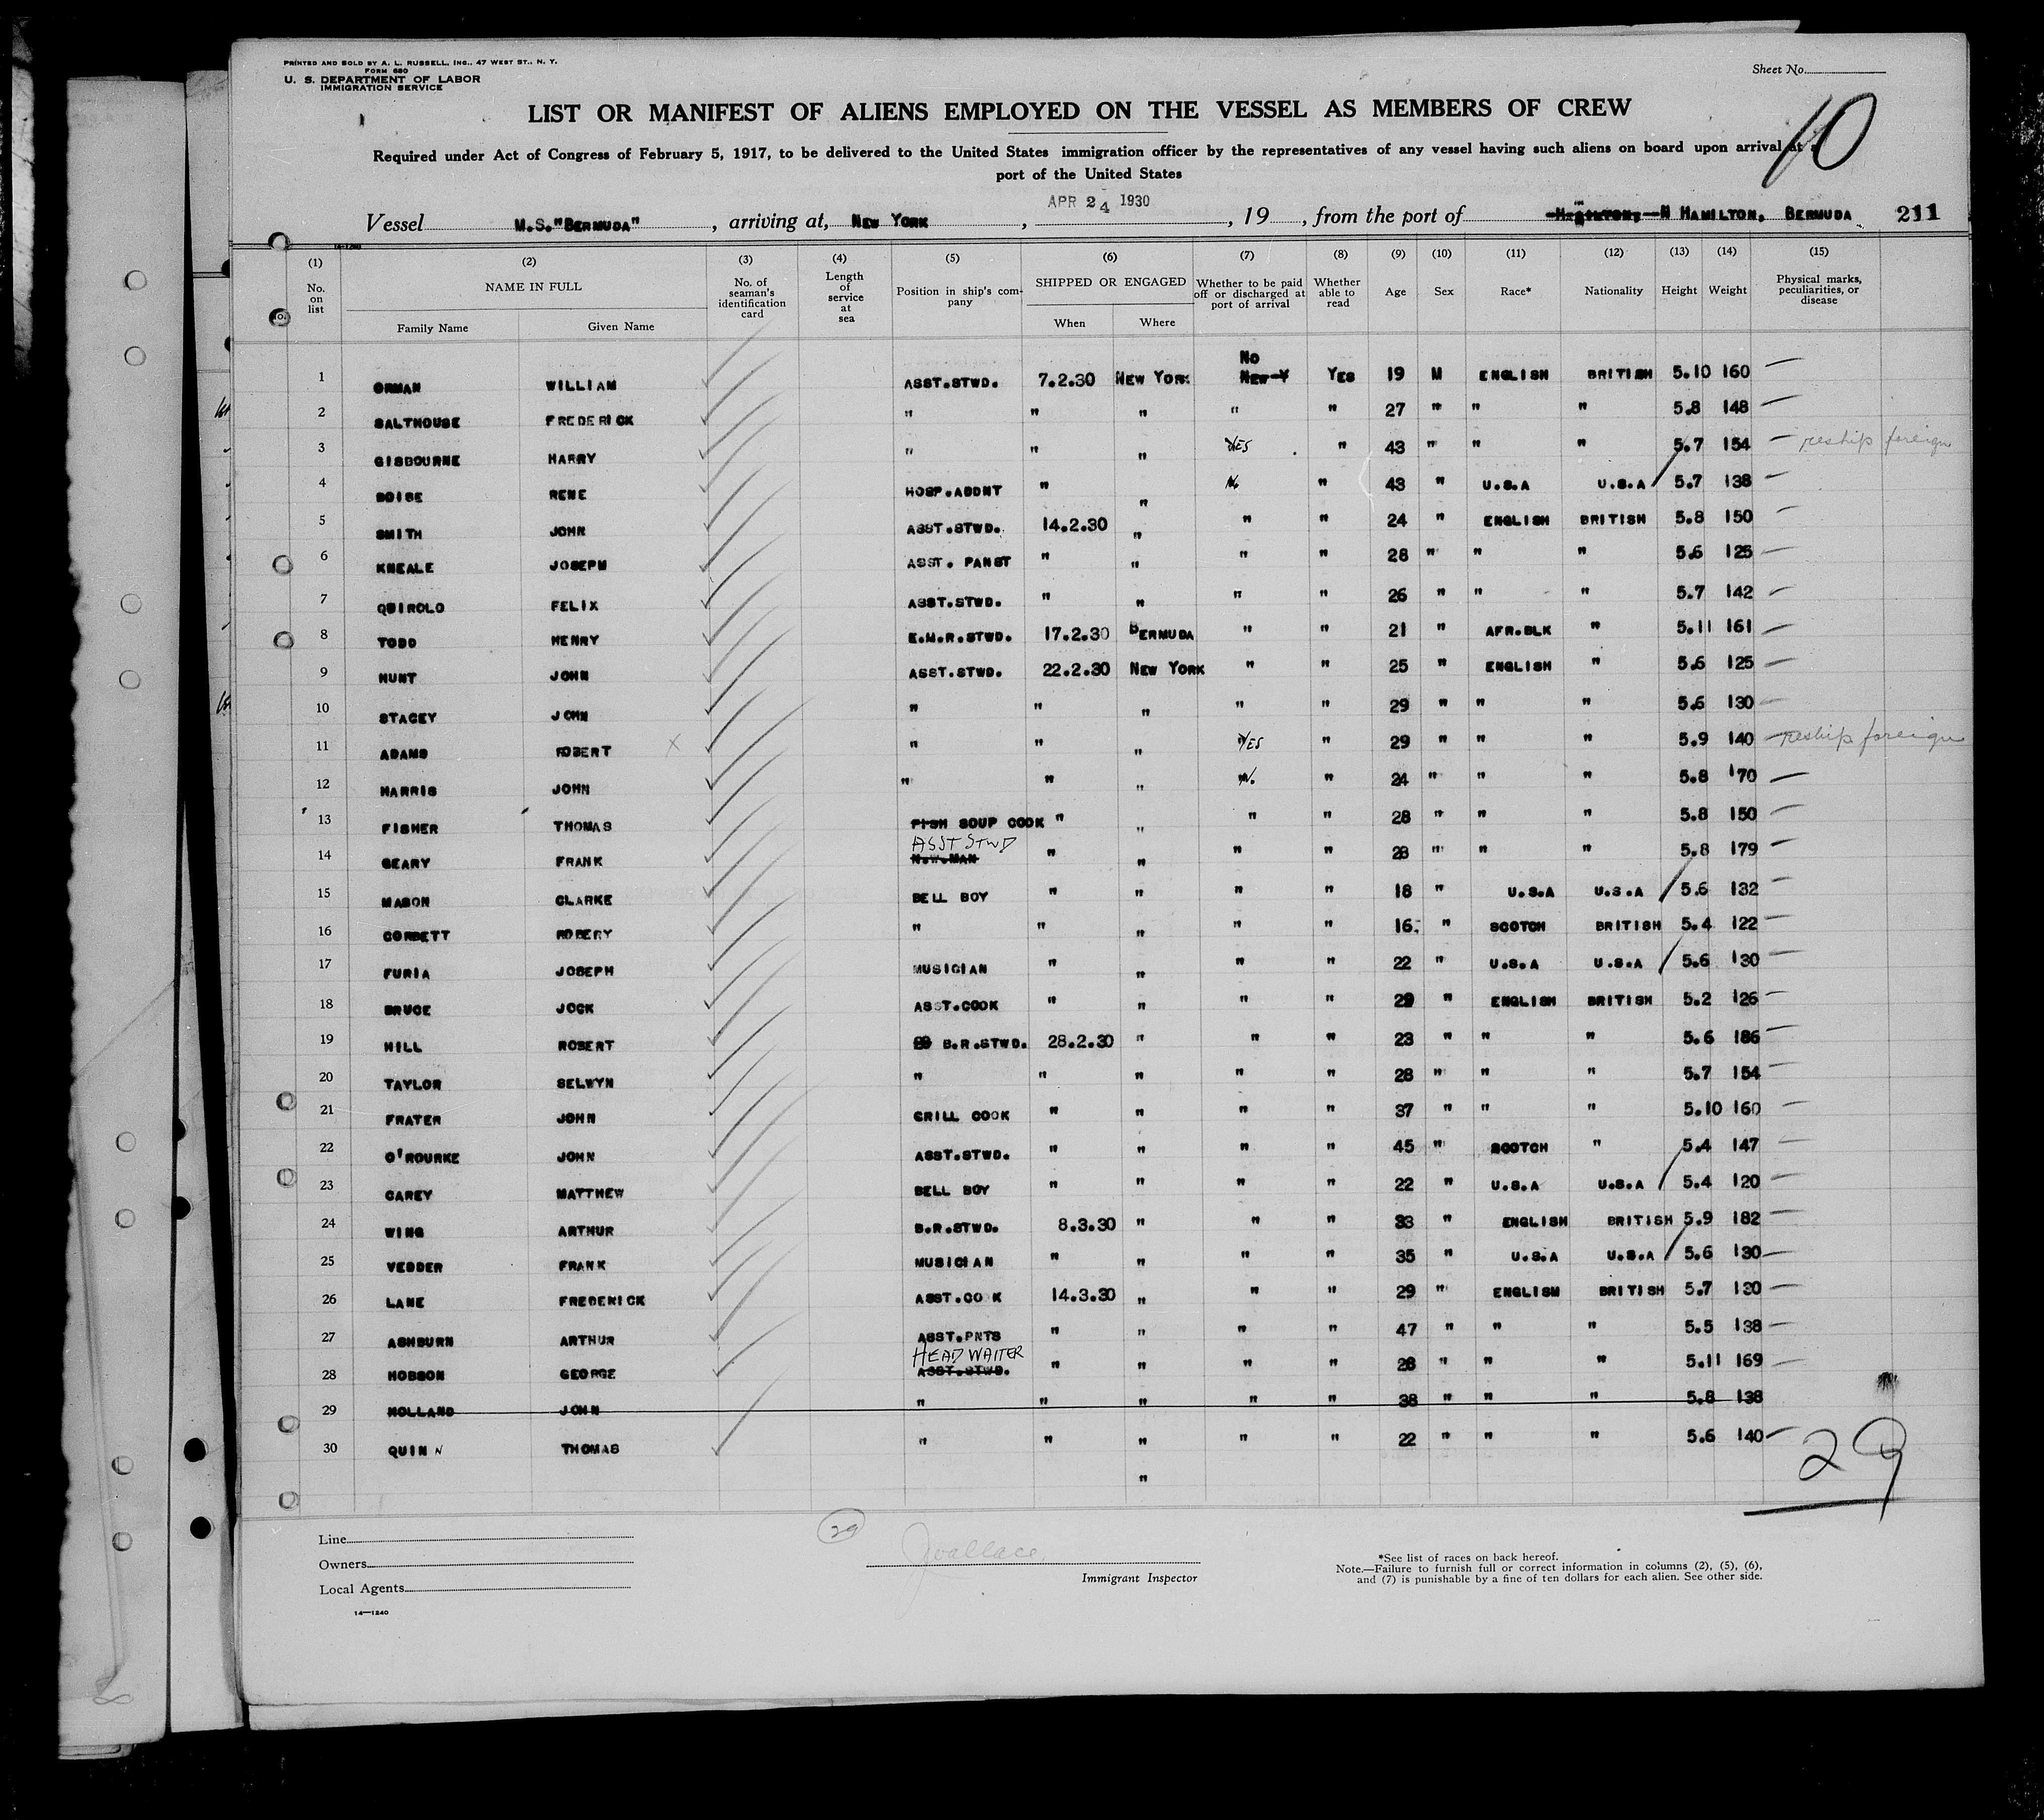 PRINTED AND SOLD BY A. L. RUSSELL, INC., 47 WEST ST., N. Y.
FORM 680
U. S. DEPARTMENT OF LABOR
IMMIGRATION SERVICE
Sheet No.
10
LIST OR MANIFEST OF ALIENS EMPLOYED ON THE VESSEL AS MEMBERS OF CREW
Required under Act of Congress of February 5, 1917, to be delivered to the United States immigration officer by the representatives of any vessel having such aliens on board upon arrival at a
port of the United States
Vessel M.S."BERMUDA", arriving at, NEW YORK, APR 24 1930, 19, from the port of HAMILTON, BERMUDA 211
(1) (2) (3) (4) (5) (6) (7) (8) (9) (10) (11) (12) (13) (14) (15)
No. on list NAME IN FULL Family Name Given Name No. of seaman's identification card Length of service at sea Position in ship's company SHIPPED OR ENGAGED When Where Whether to be paid off or discharged at port of arrival Whether able to read Age Sex Race* Nationality Height Weight Physical marks, peculiarities, or disease
1 ORMAN WILLIAM ASST.STWD. 7.2.30 NEW YORK No NEW Y YES 19 M ENGLISH BRITISH 5.10 160 —
2 SALTHOUSE FREDERICK " " " " " 27 " " " 5.8 148 —
3 GISBOURNE HARRY " " " YES " 43 " " " 5.7 154 — reship foreign
4 BOISE RENE HOSP.ADDNT " " No " 43 " U.S.A U.S.A 5.7 138 —
5 SMITH JOHN ASST.STWD. 14.2.30 " " " 24 " ENGLISH BRITISH 5.8 150 —
6 KNEALE JOSEPH ASST. PANST " " " " 28 " " " 5.6 125 —
7 QUIROLO FELIX ASST.STWD. " " " " 26 " " " 5.7 142 —
8 TODD HENRY E.M.R.STWD. 17.2.30 BERMUDA " " 21 " AFR.BLK " 5.11 161 —
9 HUNT JOHN ASST.STWD. 22.2.30 NEW YORK " " 25 " ENGLISH " 5.6 125 —
10 STACEY JOHN " " " " " 29 " " " 5.6 130 —
11 ADAMS ROBERT X " " " YES " 29 " " " 5.9 140 — reship foreign
12 HARRIS JOHN " " " No. " 24 " " " 5.8 170 —
13 FISHER THOMAS FISH SOUP COOK " " " " 28 " " " 5.8 150 —
14 GEARY FRANK ASST STWD N.W.MAN " " " " 28 " " " 5.8 179 —
15 MASON CLARKE BELL BOY " " " " 18 " U.S.A U.S.A 5.6 132 —
16 CORBETT ROBERY " " " " " 16 " SCOTCH BRITISH 5.4 122 —
17 FURIA JOSEPH MUSICIAN " " " " 22 " U.S.A U.S.A 5.6 130 —
18 BRUCE JOCK ASST.COOK " " " " 29 " ENGLISH BRITISH 5.2 126 —
19 HILL ROBERT B.R.STWD. 28.2.30 " " " 23 " " " 5.6 186 —
20 TAYLOR SELWYN " " " " " 28 " " " 5.7 154 —
21 FRATER JOHN GRILL COOK " " " " 37 " " " 5.10 160 —
22 O'ROURKE JOHN ASST.STWD. " " " " 45 " SCOTCH " 5.4 147 —
23 CAREY MATTHEW BELL BOY " " " " 22 " U.S.A U.S.A 5.4 120 —
24 WING ARTHUR B.R.STWD. 8.3.30 " " " 33 " ENGLISH BRITISH 5.9 182 —
25 VEDDER FRANK MUSICIAN " " " " 35 " U.S.A U.S.A 5.6 130 —
26 LANE FREDERICK ASST.COOK 14.3.30 " " " 29 " ENGLISH BRITISH 5.7 130 —
27 ASHBURN ARTHUR ASST.PNTS " " " " 47 " " " 5.5 138 —
28 HOBSON GEORGE HEAD WAITER ASST.STWD. " " " " 28 " " " 5.11 169 —
29 HOLLAND JOHN " " " " " 38 " " " 5.8 138
30 QUINN THOMAS " " " " " 22 " " " 5.6 140 —
"
29
Line
Owners
Local Agents
14—1240
29
J Wallace
Immigrant Inspector
*See list of races on back hereof.
Note.—Failure to furnish full or correct information in columns (2), (5), (6),
and (7) is punishable by a fine of ten dollars for each alien. See other side.